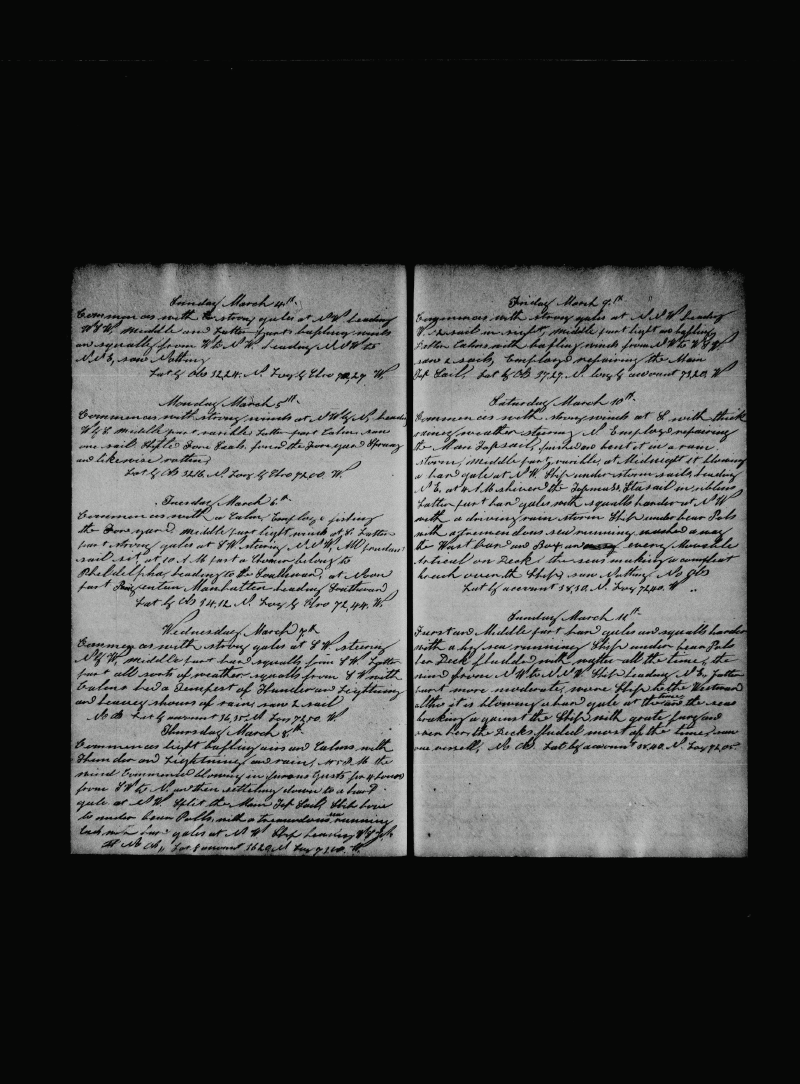 Sunday March 4th
Commences with strong gales at N W heading
W S W, Middle and Latter part bafling winds
and squally from W to N W heading N N W to
N N E, saw Nothing
Lat by Obs 32,24. N. Long by Chro 72,27 W
Monday March 5th
Commences with strong winds at N W by N, heading
W by S Middle part varible Latter part Calm. saw
one sail Shifted Fore Sails, found the Fore yard Sprung
and likewise rotten
Lat by Obs 32,18. N. Long by Chro 72,00. W
Tuesday March 6th
Commences with a Calm, Employed fishing
the Fore yard, Middle part light winds at S. Latter
part strong gales at S W steering N N W, All prudent
sail set, at 10 A M past a Schooner belong to
Pheldelpha, heading to the Southward, at Noon
past Brig Manhatten heading Southward
Lat by Obs 34,12. N. Long by Chro 72,44. W.
Wednesday March 7th
Commences with strong gales at S W. steering
N by W, Middle part hard squalls from S W Latter
part all sorts of weather squalls from S W with
Calms had a Tempest of Thunder and Lightning
and heavey showers of rain, saw 2 sail
No Ob Lat by account 36,35. N Long 72,50. W
Thursday March 8th
Commences light bafling airs and Calms with
Thunder and Lightning and rain, at 5 P. M the
wind Commenced blowing in furious Gusts for 4 hours
from S W to N, and then settelling down to a hard
gale at N W. Split the Main Top Sail, Ship hove
to under bear Polls, with a tremendous sea running
gales at N W Ship heading
No Ob, Lat by account 36,20 N Long 71,00. W.
Friday March 9th
Commences with strong gales at N N W heading
W. 2 sail in sight, Middle part light and bafling
Latter Calms with bafling winds from N W to W S W
saw 2 sails, Employed repairing the Main
Top Sail. Lat by Ob 37,27. N. Long by account 73,20, W
Saturday March 10th
Commences with strong winds at S with thick
rainey weather steering N Employed repairing
the Main Topsail, finished and bent it in a rain
storm, Middle part varible, at Midnight it blowing
a hard gale at N W Ship under storm sails heading
N E, at 4 A. M
Latter part hard gales with squalls harder at N W
with a driving rain storm Ship under bear Pols
with a tremendous sea running washed away
the Wast boards and every Moveable
Artical on Deck, the seas making a compleat
breach over the Ship, saw Nothing No Ob
Lat by account 38,30. N. Long 72,40. W
Sunday March 11th
Furst and Middle part hard gales and squalls harder
with a big sea running Ship under bear Pols
her Deck fludded with watter all the time, the
wind from N W to N N W Ship heading N E, Latter
part more moderate, wore Ship to the Westward
altho it is blowing a hard gale at the time and the seas
braking against the Ship with grate fury and
over her the Decks fluded most of the time, saw
one vessell, No Ob. Lat by account 38,40. N. Long 72,05.